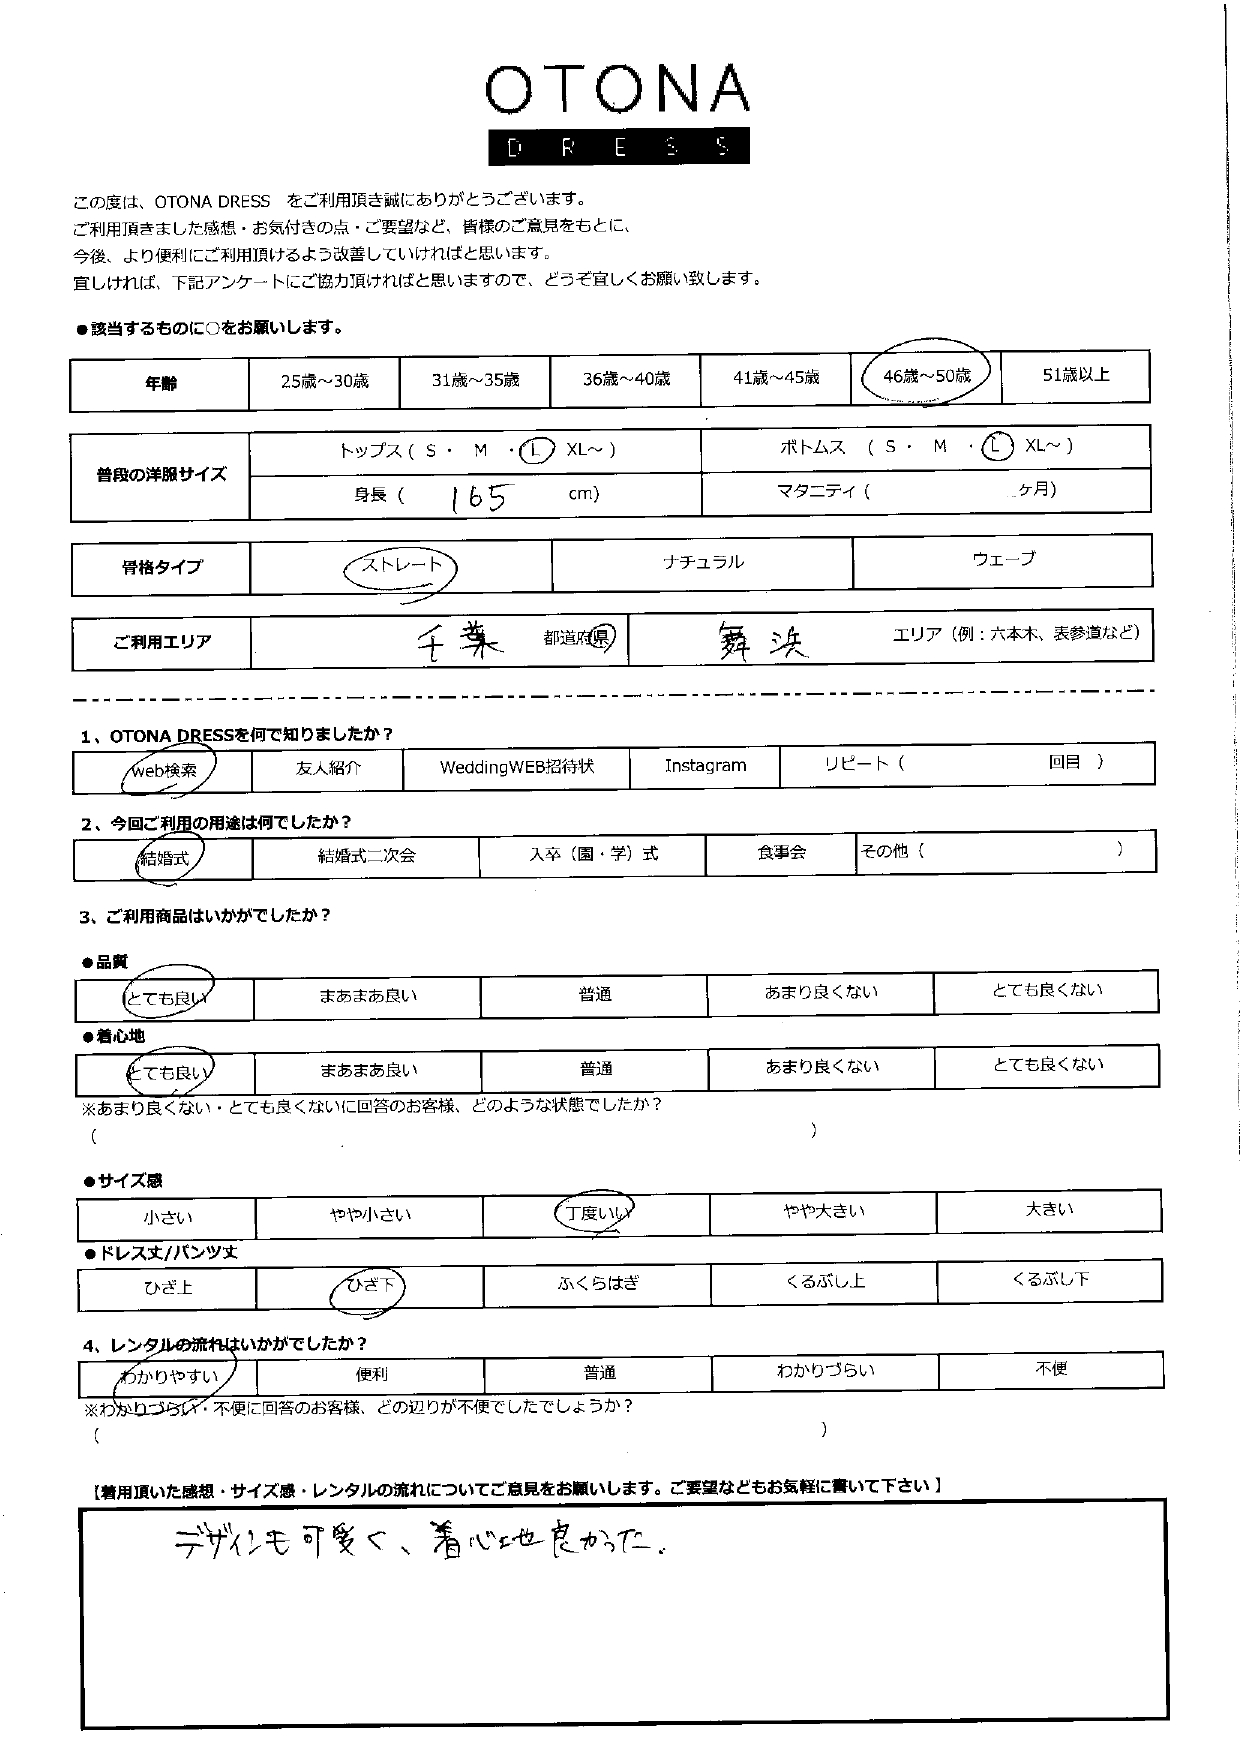 OTONA
DRESS
この度は、OTONA DRESS をご利用頂き誠にありがとうございます。
ご利用頂きました感想・お気付きの点・ご要望など、皆様のご意見をもとに、
今後、より便利にご利用頂けるよう改善していければと思います。
宜しければ、下記アンケートにご協力頂ければと思いますので、どうぞ宜しくお願い致します。
●該当するものに○をお願いします。
年齢 25歳～30歳 31歳～35歳 36歳～40歳 41歳～45歳 46歳～50歳 51歳以上
普段の洋服サイズ トップス ( S ・ M ・ L XL～ ) ボトムス ( S ・ M ・ L XL～ )
身長 ( 165 cm) マタニティ ( ヶ月)
骨格タイプ ストレート ナチュラル ウェーブ
ご利用エリア 千葉 都道府県 舞浜 エリア（例：六本木、表参道など）
1、OTONA DRESSを何で知りましたか？
web検索 友人紹介 WeddingWEB招待状 Instagram リピート ( 回目 )
2、今回ご利用の用途は何でしたか？
結婚式 結婚式二次会 入卒（園・学）式 食事会 その他 ( )
3、ご利用商品はいかがでしたか？
●品質
とても良い まあまあ良い 普通 あまり良くない とても良くない
●着心地
とても良い まあまあ良い 普通 あまり良くない とても良くない
※あまり良くない・とても良くないに回答のお客様、どのような状態でしたか？
( )
●サイズ感
小さい やや小さい 丁度いい やや大きい 大きい
●ドレス丈/パンツ丈
ひざ上 ひざ下 ふくらはぎ くるぶし上 くるぶし下
4、レンタルの流れはいかがでしたか？
わかりやすい 便利 普通 わかりづらい 不便
※わかりづらい・不便に回答のお客様、どの辺りが不便でしたでしょうか？
( )
【着用頂いた感想・サイズ感・レンタルの流れについてご意見をお願いします。ご要望などもお気軽に書いて下さい】
デザインも可愛く、着心地良かった.